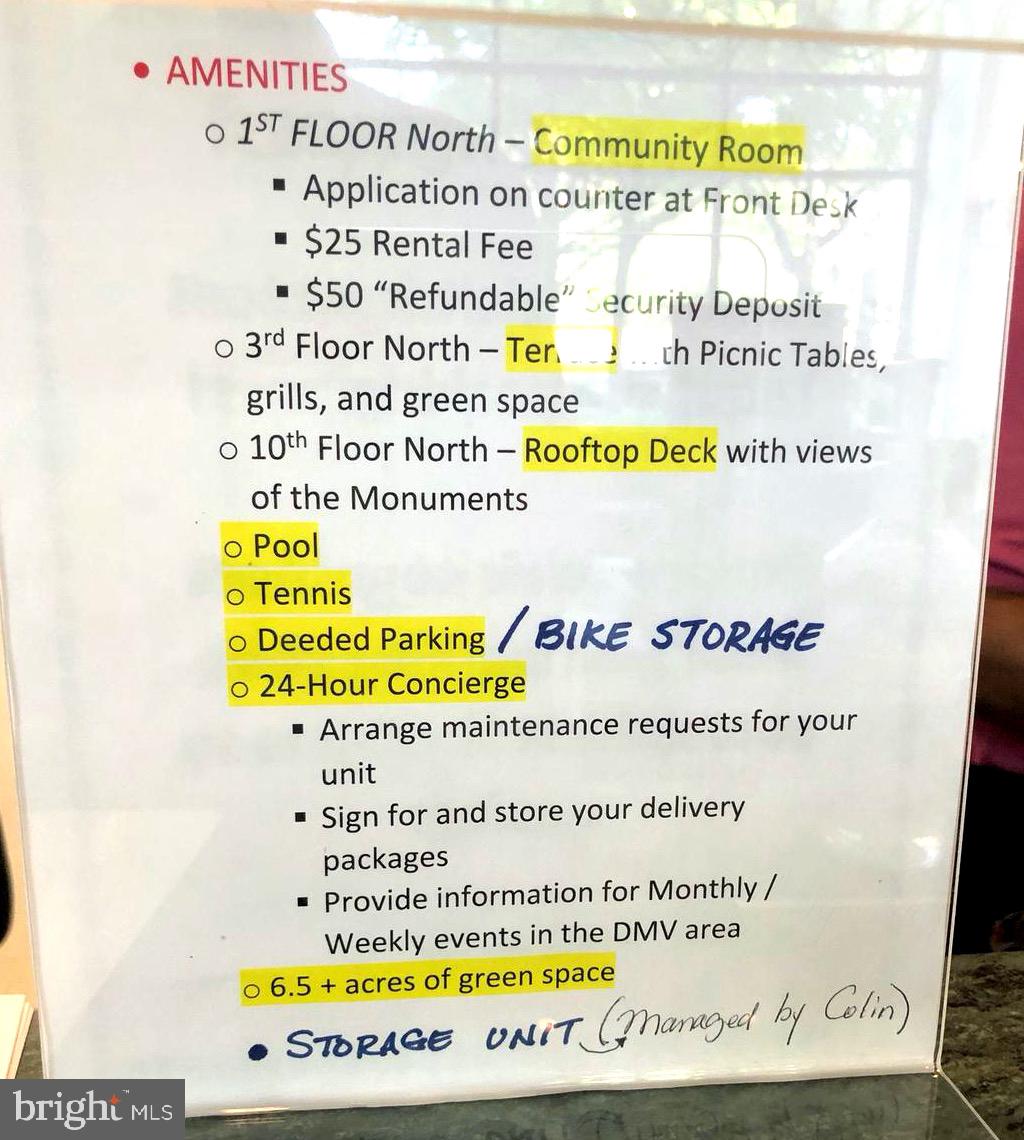 • AMENITIES
o 1ST FLOOR North – Community Room
▪ Application on counter at Front Desk
▪ $25 Rental Fee
▪ $50 “Refundable” Security Deposit
o 3rd Floor North – Picnic Tables,
grills, and green space
o 10th Floor North – Rooftop Deck with views
of the Monuments
o Pool
o Tennis
o Deeded Parking / BIKE STORAGE
o 24-Hour Concierge
▪ Arrange maintenance requests for your
unit
▪ Sign for and store your delivery
packages
▪ Provide information for Monthly /
Weekly events in the DMV area
o 6.5 + acres of green space
• STORAGE UNIT (Managed by Colin)
bright™ MLS